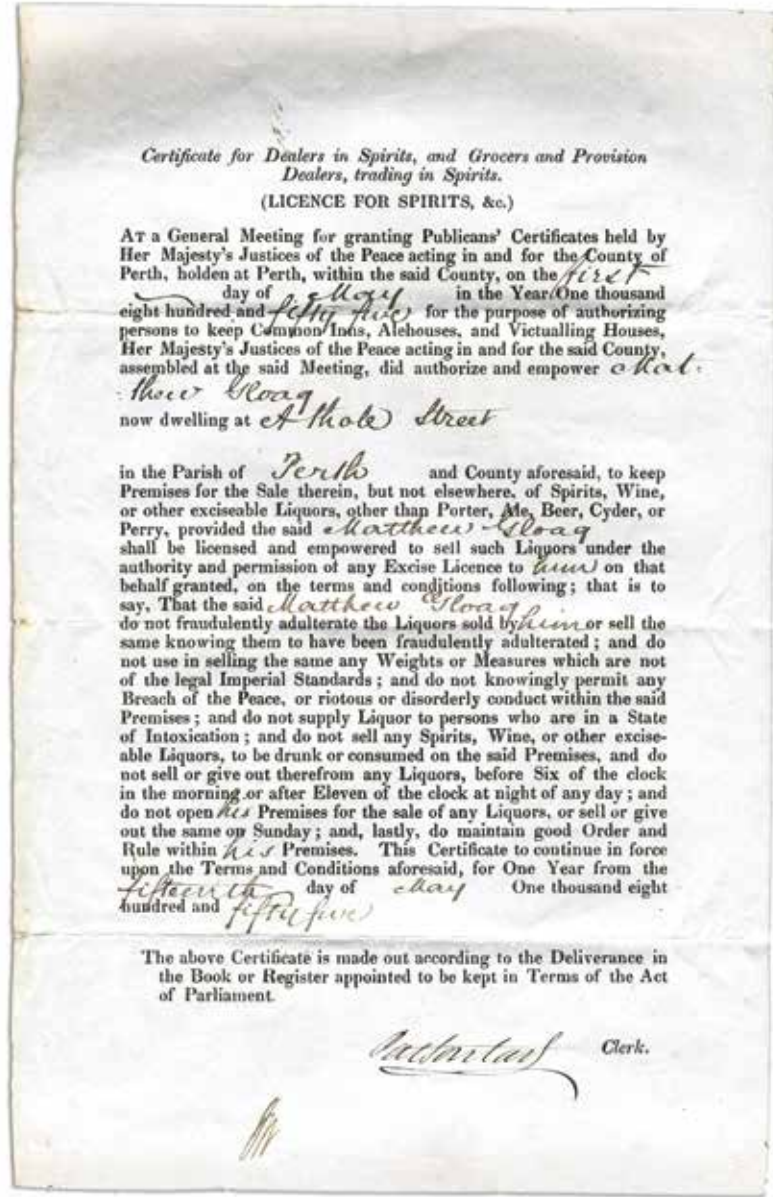 Certificate for Dealers in Spirits, and Grocers and Provision
Dealers, trading in Spirits.
(LICENCE FOR SPIRITS, &c.)
AT a General Meeting for granting Publicans' Certificates held by
Her Majesty's Justices of the Peace acting in and for the County of
Perth, holden at Perth, within the said County, on the first
day of May in the Year One thousand
eight hundred and fifty five for the purpose of authorizing
persons to keep Common Inns, Alehouses, and Victualling Houses,
Her Majesty's Justices of the Peace acting in and for the said County,
assembled at the said Meeting, did authorize and empower Mat-
thew Gloag
now dwelling at Athole Street
in the Parish of Perth and County aforesaid, to keep
Premises for the Sale therein, but not elsewhere, of Spirits, Wine,
or other exciseable Liquors, other than Porter, Ale, Beer, Cyder, or
Perry, provided the said Matthew Gloag
shall be licensed and empowered to sell such Liquors under the
authority and permission of any Excise Licence to him on that
behalf granted, on the terms and conditions following; that is to
say, That the said Matthew Gloag
do not fraudulently adulterate the Liquors sold by him or sell the
same knowing them to have been fraudulently adulterated; and do
not use in selling the same any Weights or Measures which are not
of the legal Imperial Standards; and do not knowingly permit any
Breach of the Peace, or riotous or disorderly conduct within the said
Premises; and do not supply Liquor to persons who are in a State
of Intoxication; and do not sell any Spirits, Wine, or other excise-
able Liquors, to be drunk or consumed on the said Premises, and do
not sell or give out therefrom any Liquors, before Six of the clock
in the morning or after Eleven of the clock at night of any day; and
do not open his Premises for the sale of any Liquors, or sell or give
out the same on Sunday; and, lastly, do maintain good Order and
Rule within his Premises. This Certificate to continue in force
upon the Terms and Conditions aforesaid, for One Year from the
fifteenth day of May One thousand eight
hundred and fifty five
The above Certificate is made out according to the Deliverance in
the Book or Register appointed to be kept in Terms of the Act
of Parliament.
Clerk.